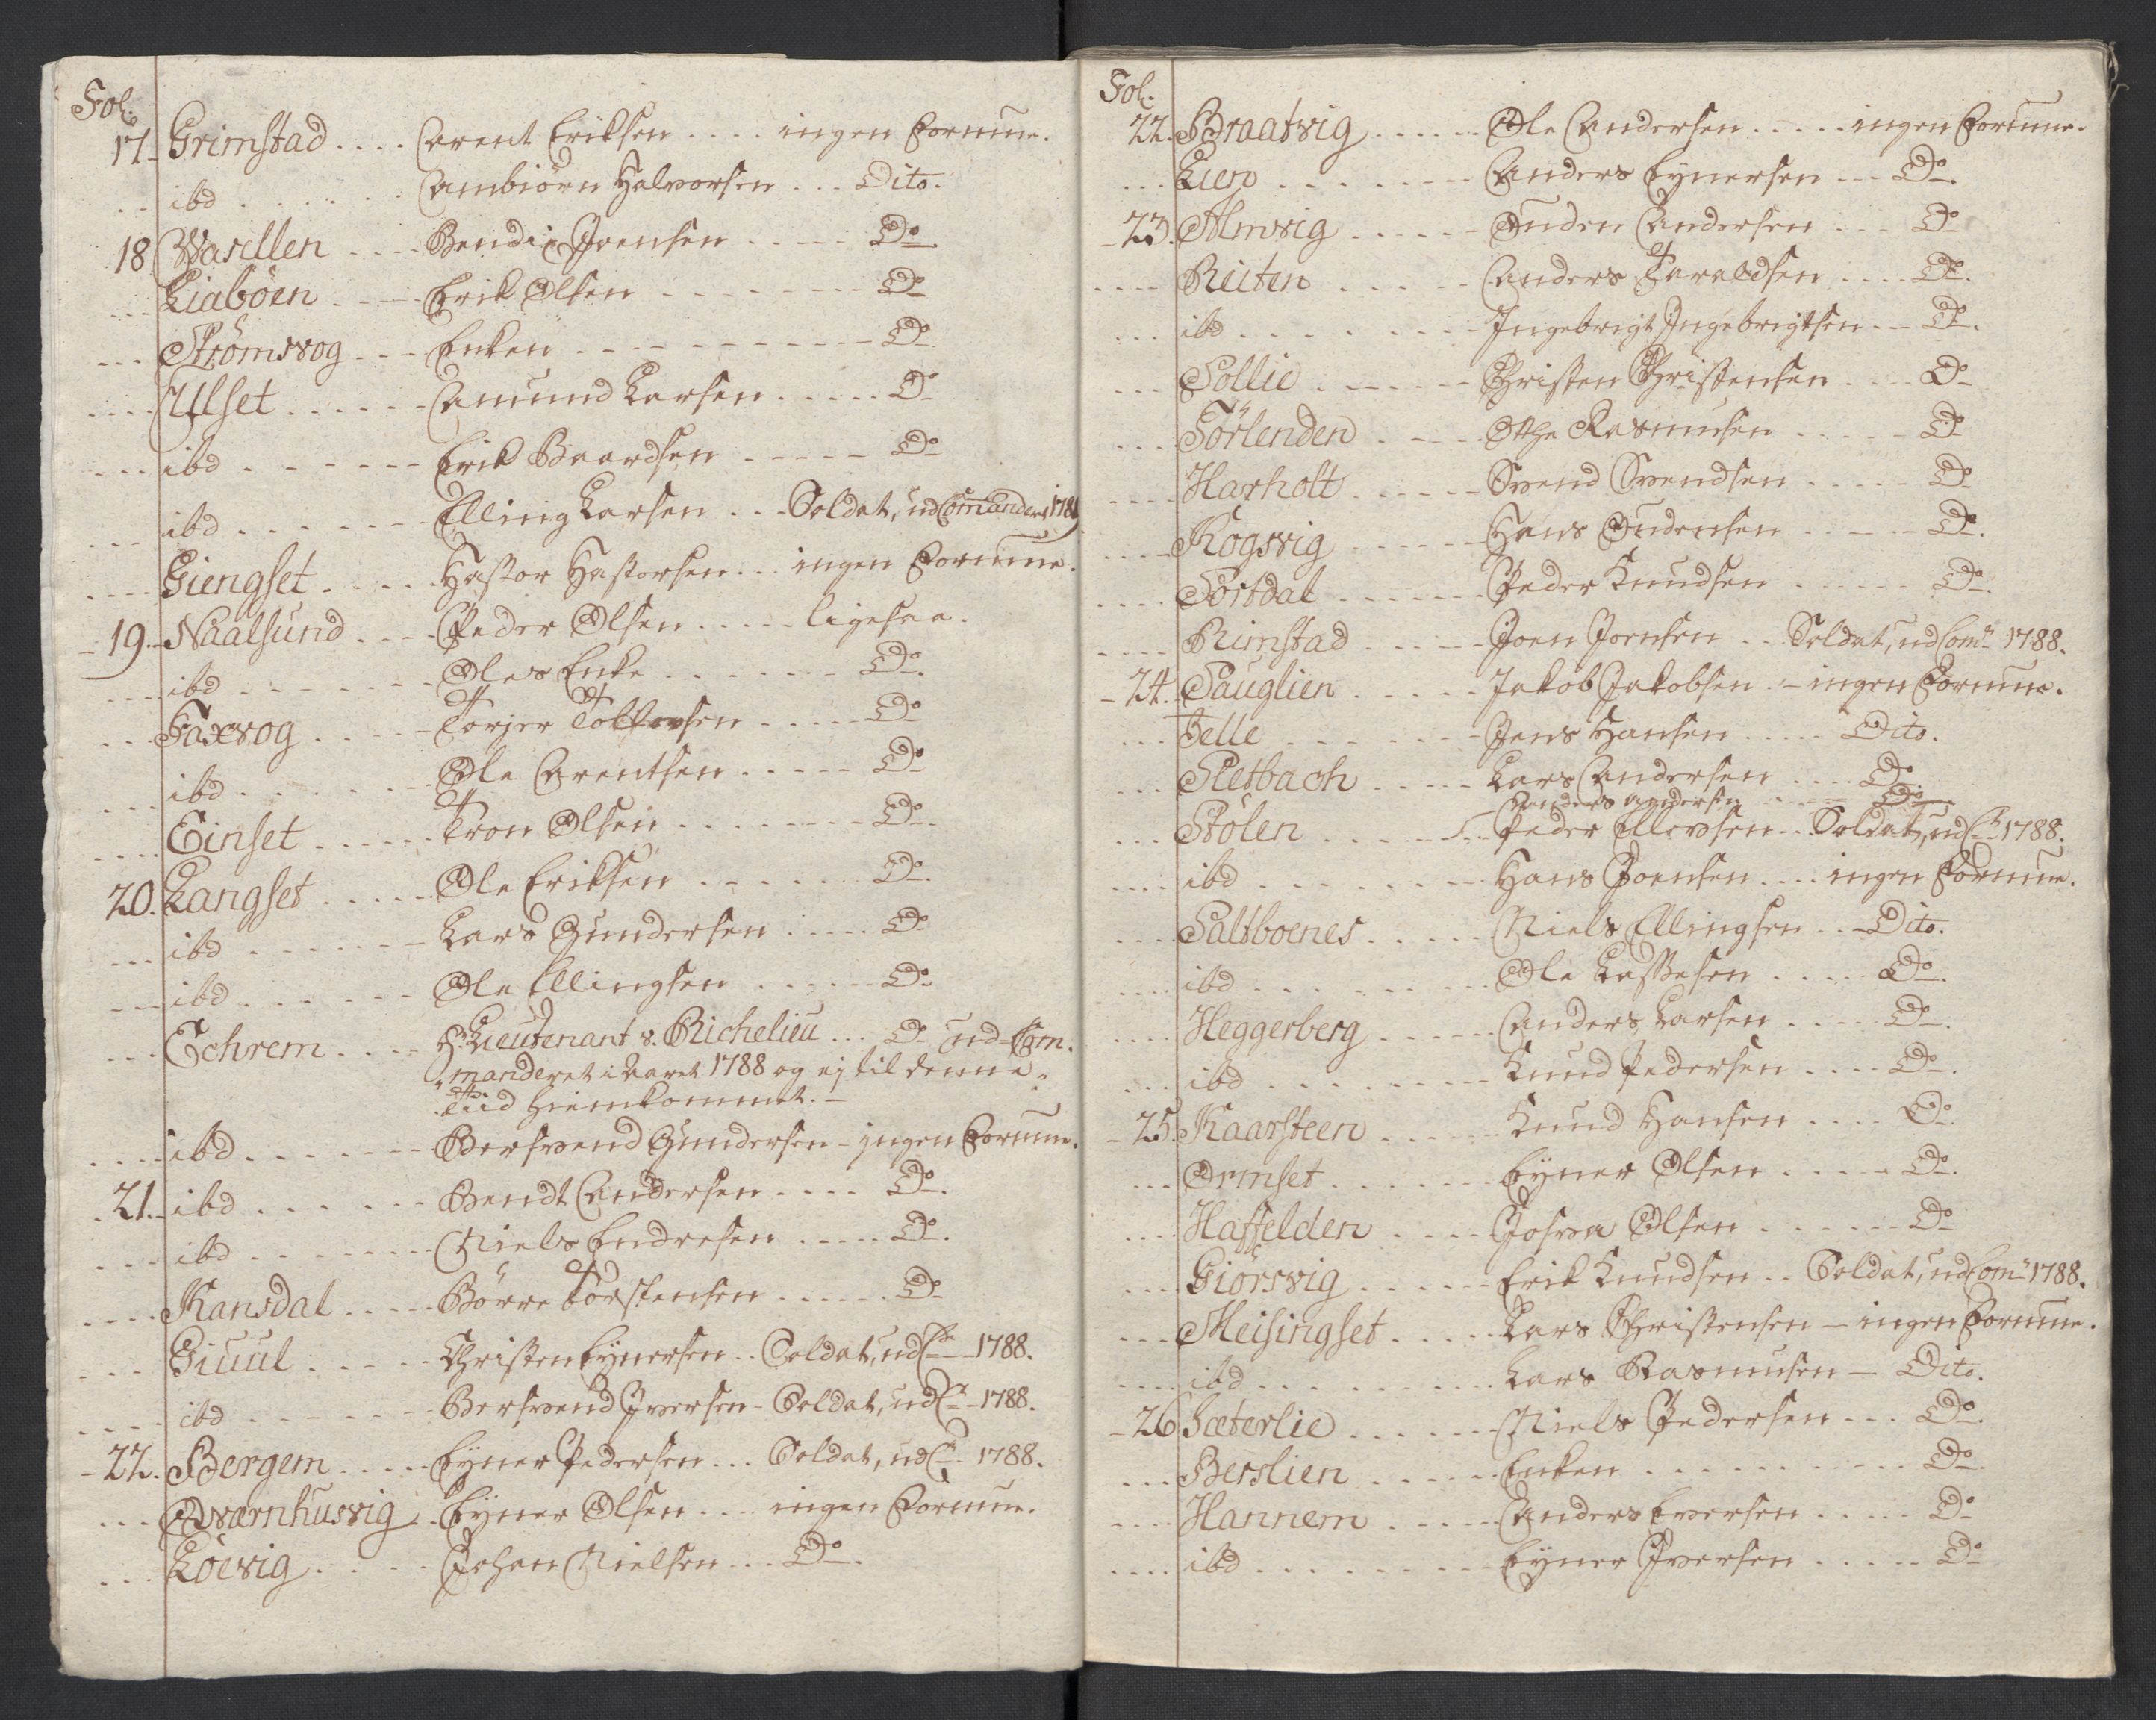 Fol.
17. Grimstad .... Arent Eriksen .... ingen Formue.
.. ibd ...... Ambiörn Halvorsen ... Dito.
18 Wasillen .... Bendix Joensen ..... Do.
... Liaböen .... Erik Olsen ....... Do
... Strömsvog ... Enken .......... Do
.... Ulset ...... Amund Larsen ..... Do
.... ibd ....... Erik Baardsen ..... Do
... ibd ...... Elling Larsen ... Soldat, ud Comanderet 1788
.... Giengset ..... Hastor Hastorsen ... ingen Formue.
- 19. Naalsund .... Peder Olsen ..... ligesaa.
... ibd ....... Oles Enke ....... Do.
... Faxvog ..... Torjer Tolfsen ..... Do
... ibd ....... Ole Arentsen ..... Do
.... Einset ...... Tron Olsen ....... Do.
20. Langset ..... Ole Eriksen ...... Do.
... ibd ....... Lars Gundersen ..... Do
... ibd ...... Ole Ellingsen ..... Do.
... Echrem .... Hr Lieutenant v. Richelieu ... Do ud-Com.
manderet i Aaret 1788 og ej til denne
Tiid hiemkommet. -
.... ibd ...... Bersvend Gundersen - ingen Formue.
. 21. ibd ...... Bendt Andersen .... Do.
... ibd ....... Niels Endresen ..... Do.
.... Kansdal ..... Börre Torstensen ...... Do
... Giuul ..... Christen Eynersen .. Soldat, ud C- 1788.
... ibd ...... Bersvend Iversen - Soldat, ud C- 1788.
- 22. Bergem ..... Eyner Pedersen ... Soldat, ud C- 1788.
... Qværnhusvig .. Eyner Olsen ... ingen Formue.
... Löevig ..... Johan Nielsen ... Do.
Fol.
22. Braatvig ...... Ole Andersen ..... ingen Formue.
... Lien ....... Anders Eynersen ... Do.
- 23. Almvig ...... Ouden Andersen ... Do
.... Reiten ..... Anders Taraldsen .... Do.
... ibd ........ Ingebrigt Ingebrigtsen .. Do.
... Sollie ...... Christen Christensen ... Do
.... Törlenden .... Othe Rasmusen ..... Do
.... Harholt ...... Svend Svendsen ..... Do
.... Kogsvig ..... Hans Oudensen ..... Do.
.... Sortdal ...... Peder Knudsen ...... Do.
.... Rimstad ..... Joen Joensen .. Soldat, ud Com. 1788.
- 24. Sauglien ..... Jakob Jakobsen . - ingen Formue.
... Belle ....... Jens Hansen ..... Dito.
... Sletbach ..... Lars Andersen .... Do.
Anders Andersen .... Do
... Stölen ...... Peder Ellevsen .. Soldat, ud C. 1788.
.... ibd ....... Hans Joensen .... ingen Formue.
.... Saltboenes ..... Niels Ellingsen .. Dito.
.... ibd ........ Ole Lassesen ..... Do.
.... Heggerberg ..... Anders Larsen .... Do.
... ibd ........ Knud Pedersen .... Do.
- 25. Kaarsteen ..... Knud Hansen .... Do.
... Ormset ...... Eyner Olsen ..... Do.
.... Haffelden .... Josva Olsen ...... Do
... Giörsvig ...... Erik Knudsen .. Soldat, ud Com. 1788.
... Meisingset ..... Lars Christensen - ingen Formue.
.... ibd ........ Lars Rasmusen - Dito.
- 26 Sæterlie ...... Niels Pedersen ... Do.
... Berslien ...... Enken .......... Do.
.... Hannem ..... Anders Eversen ..... Do
.... ibd ........ Eyner Iversen ...... Do